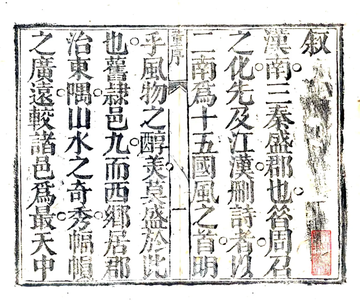 叙
漢南三秦盛郡也昔周召
之化先及江漢刪詩者以
二南為十五國風之首明
乎風物之醇美莫盛於此
也舊隷邑九而西鄉居郡
治東隅山水之奇秀幅幀
之廣遠較諸邑為最天中